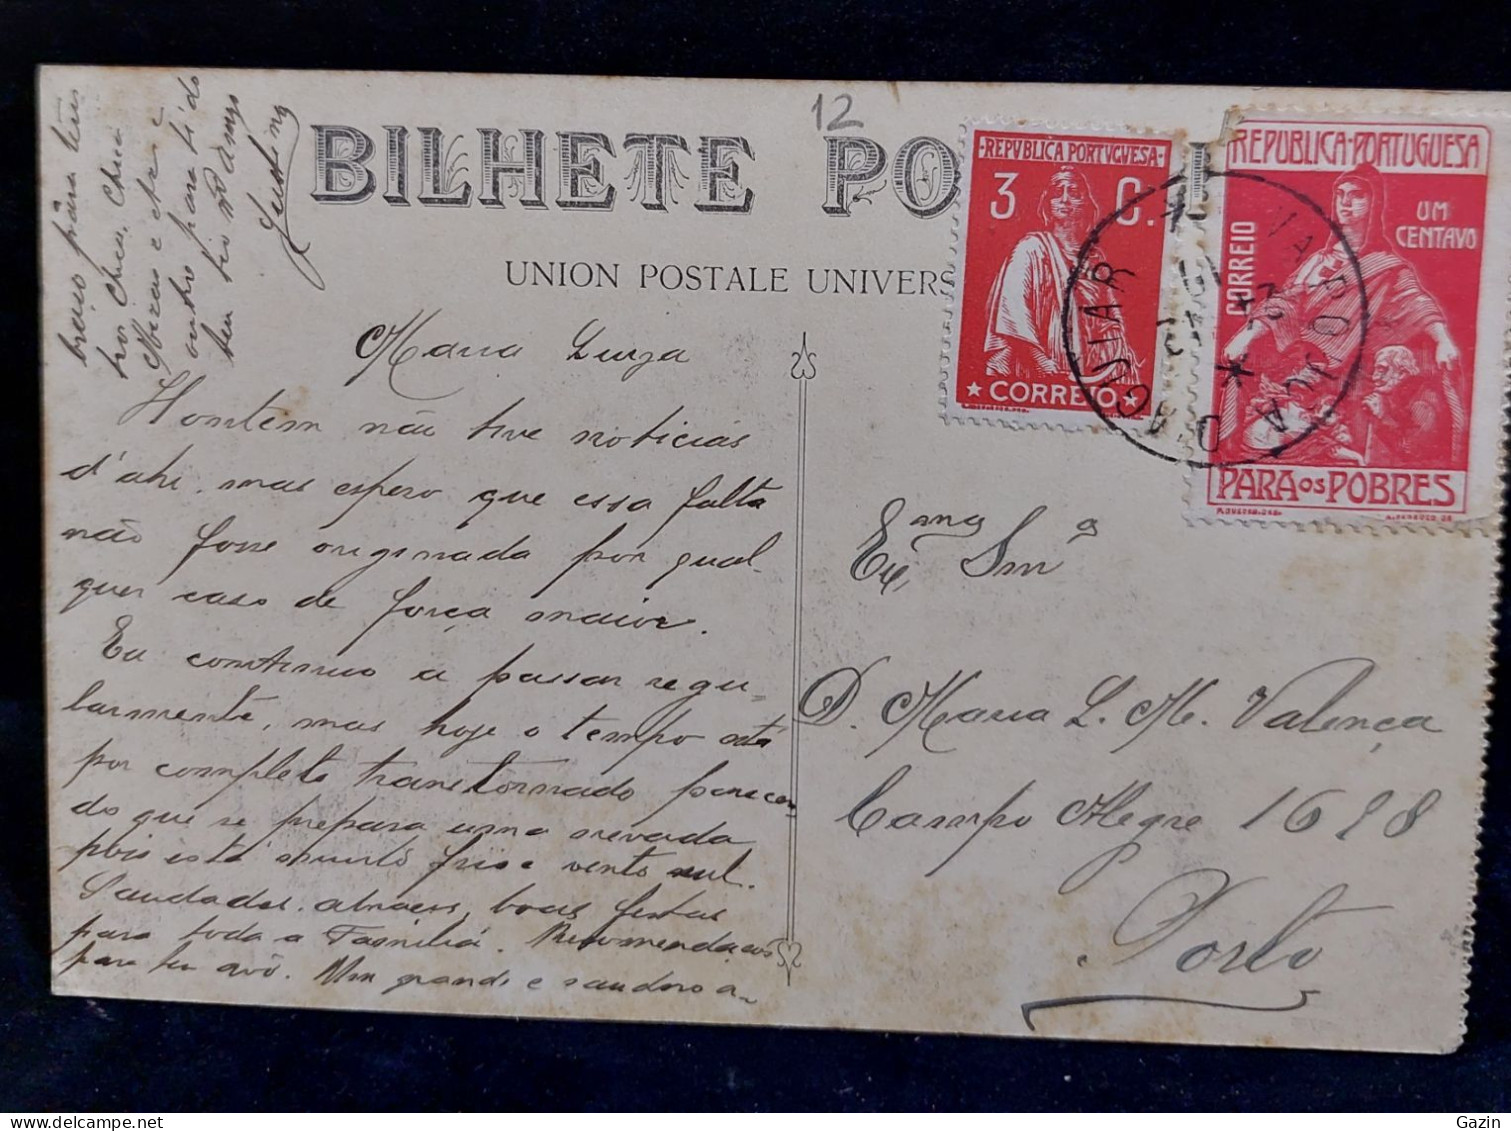 12
BILHETE PO
UNION POSTALE UNIVERS
REPVBLICA PORTVGVESA
3 C.
CORREIO
REPUBLICA PORTUGUESA
CORREIO
UM
CENTAVO
PARA OS POBRES
VILA POUCA D'AGUIAR
Maria Luiza
Hontem não tive noticias
d'ahi, mas espero que essa falta
não fosse originada por qual-
quer caso de força maior.
Eu continuo a passar regu-
larmente, mas hoje o tempo está
por completo transtornado parecen-
do que se prepara uma nevada
pois está muito frio e vento sul.
Saudades, abraços, boas festas
para toda a Familia. Recomendações
para teu avô. Um grande e saudoso a-
braço para
outro para ti do
teu
Exma Snra
D. Maria L. M. Valença
Campo Alegre 1628
Porto
Gazin